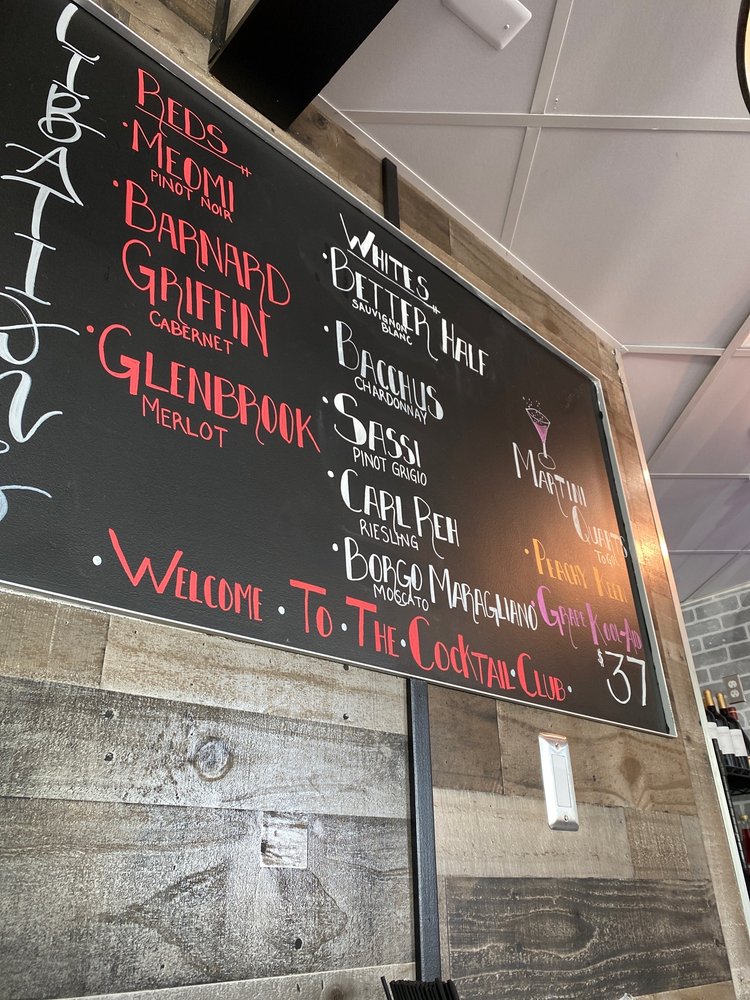 LIBATIONS
REDS
• MEOMI
PINOT NOIR
• BARNARD
GRIFFIN
CABERNET
• GLENBROOK
MERLOT
WHITES
• BETTER HALF
SAUVIGNON
BLANC
• BACCHUS
CHARDONNAY
• SASSI
PINOT GRIGIO
• CARL REH
RIESLING
• BORGO MARAGLIANO
MOSCATO
MARTINI
QUARTS
TO GO!
• PEACHY KEEN
• GRAPE KOOL-AID
$37
• WELCOME • TO • THE • COCKTAIL • CLUB •